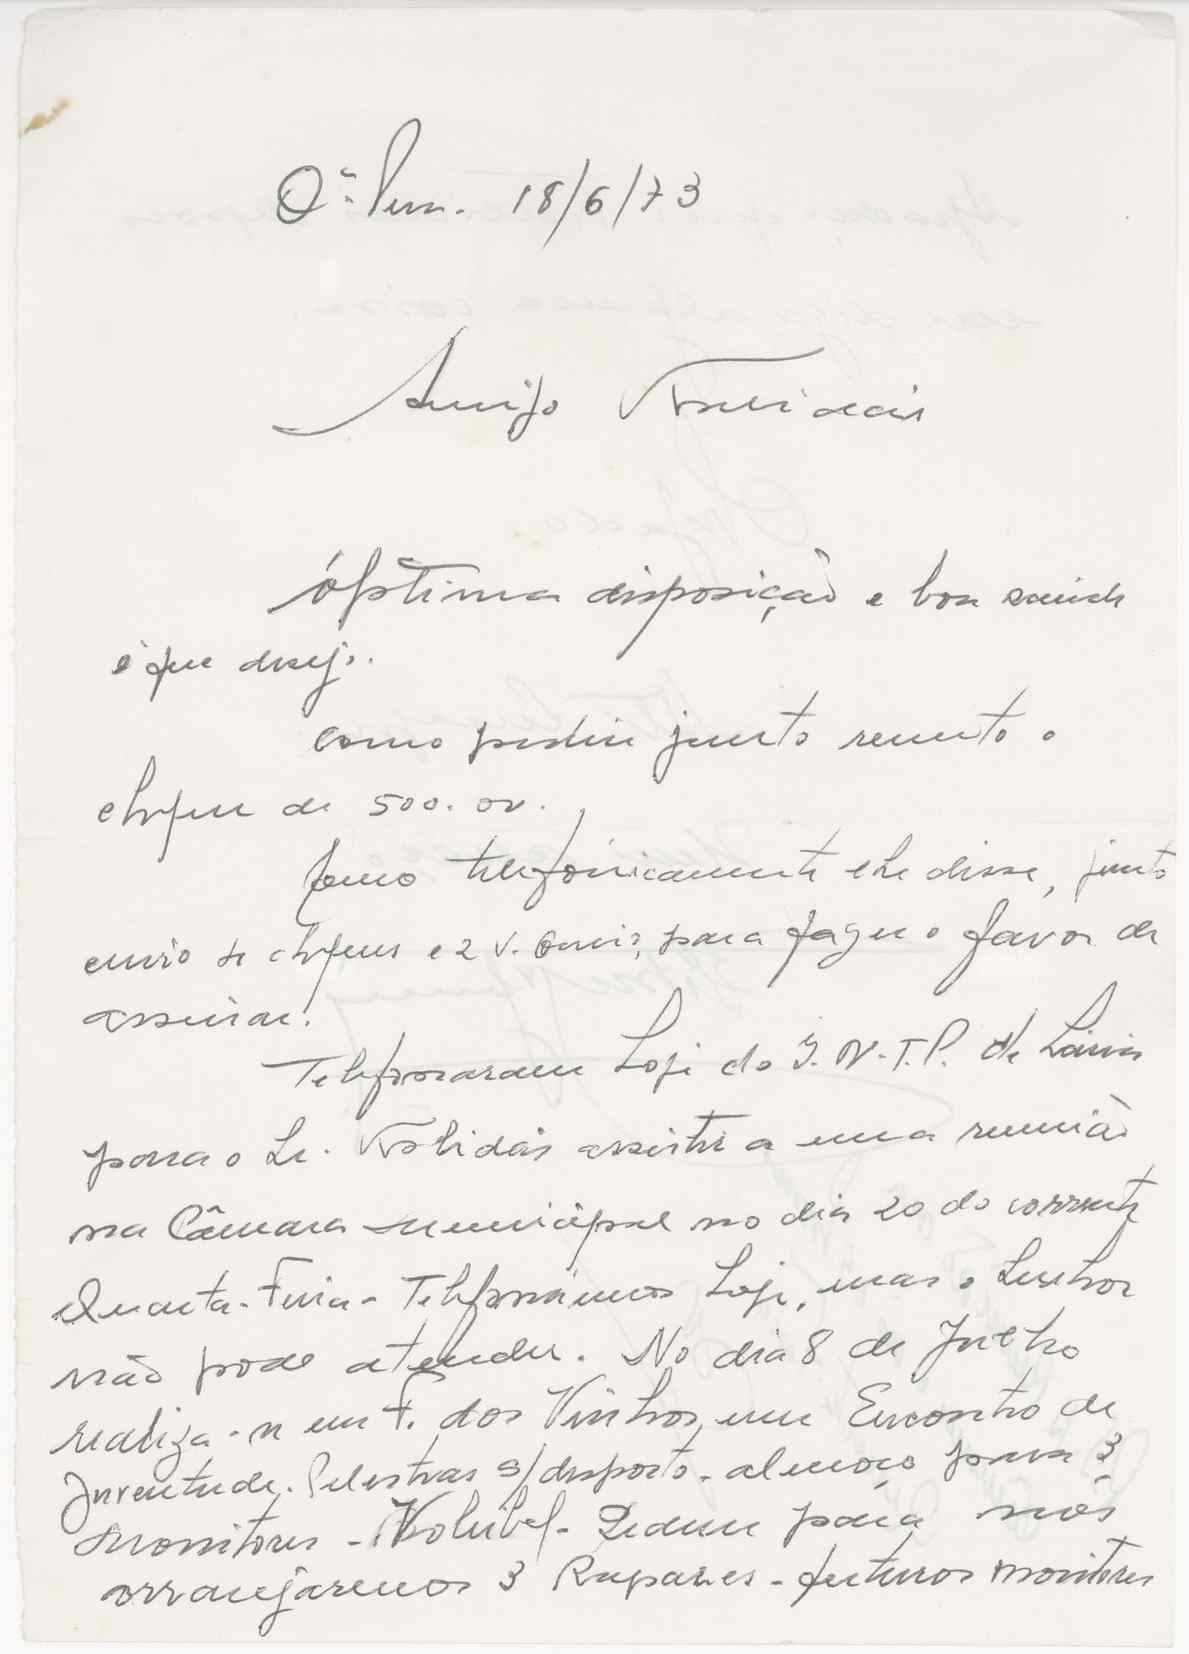 18/6/73
Amigo
óptima disposição e boa saude
é que desejo.
como pediu junto remeto o
cheque de 500.00.
Como telefonicamente lhe disse, junto
envio se cheques e 2 V. para faze o favor de
assinar.
Telefonaram hoje do I.N.T.P. de Leiria
para o Sr. Tolidás assistir a uma reunião
na Câmara Municipal no dia 20 do corrente
Quarta-Feira - Telefonámos hoje, mas o Senhor
não pode atender. No dia 8 de Julho
realiza-se em F. dos Vinhos, um Encontro de
Juventude. Palestras s/ desporto - almoço para 3
monitores - Pedem para nós
arranjarmos 3 Rapazes - futuros monitores